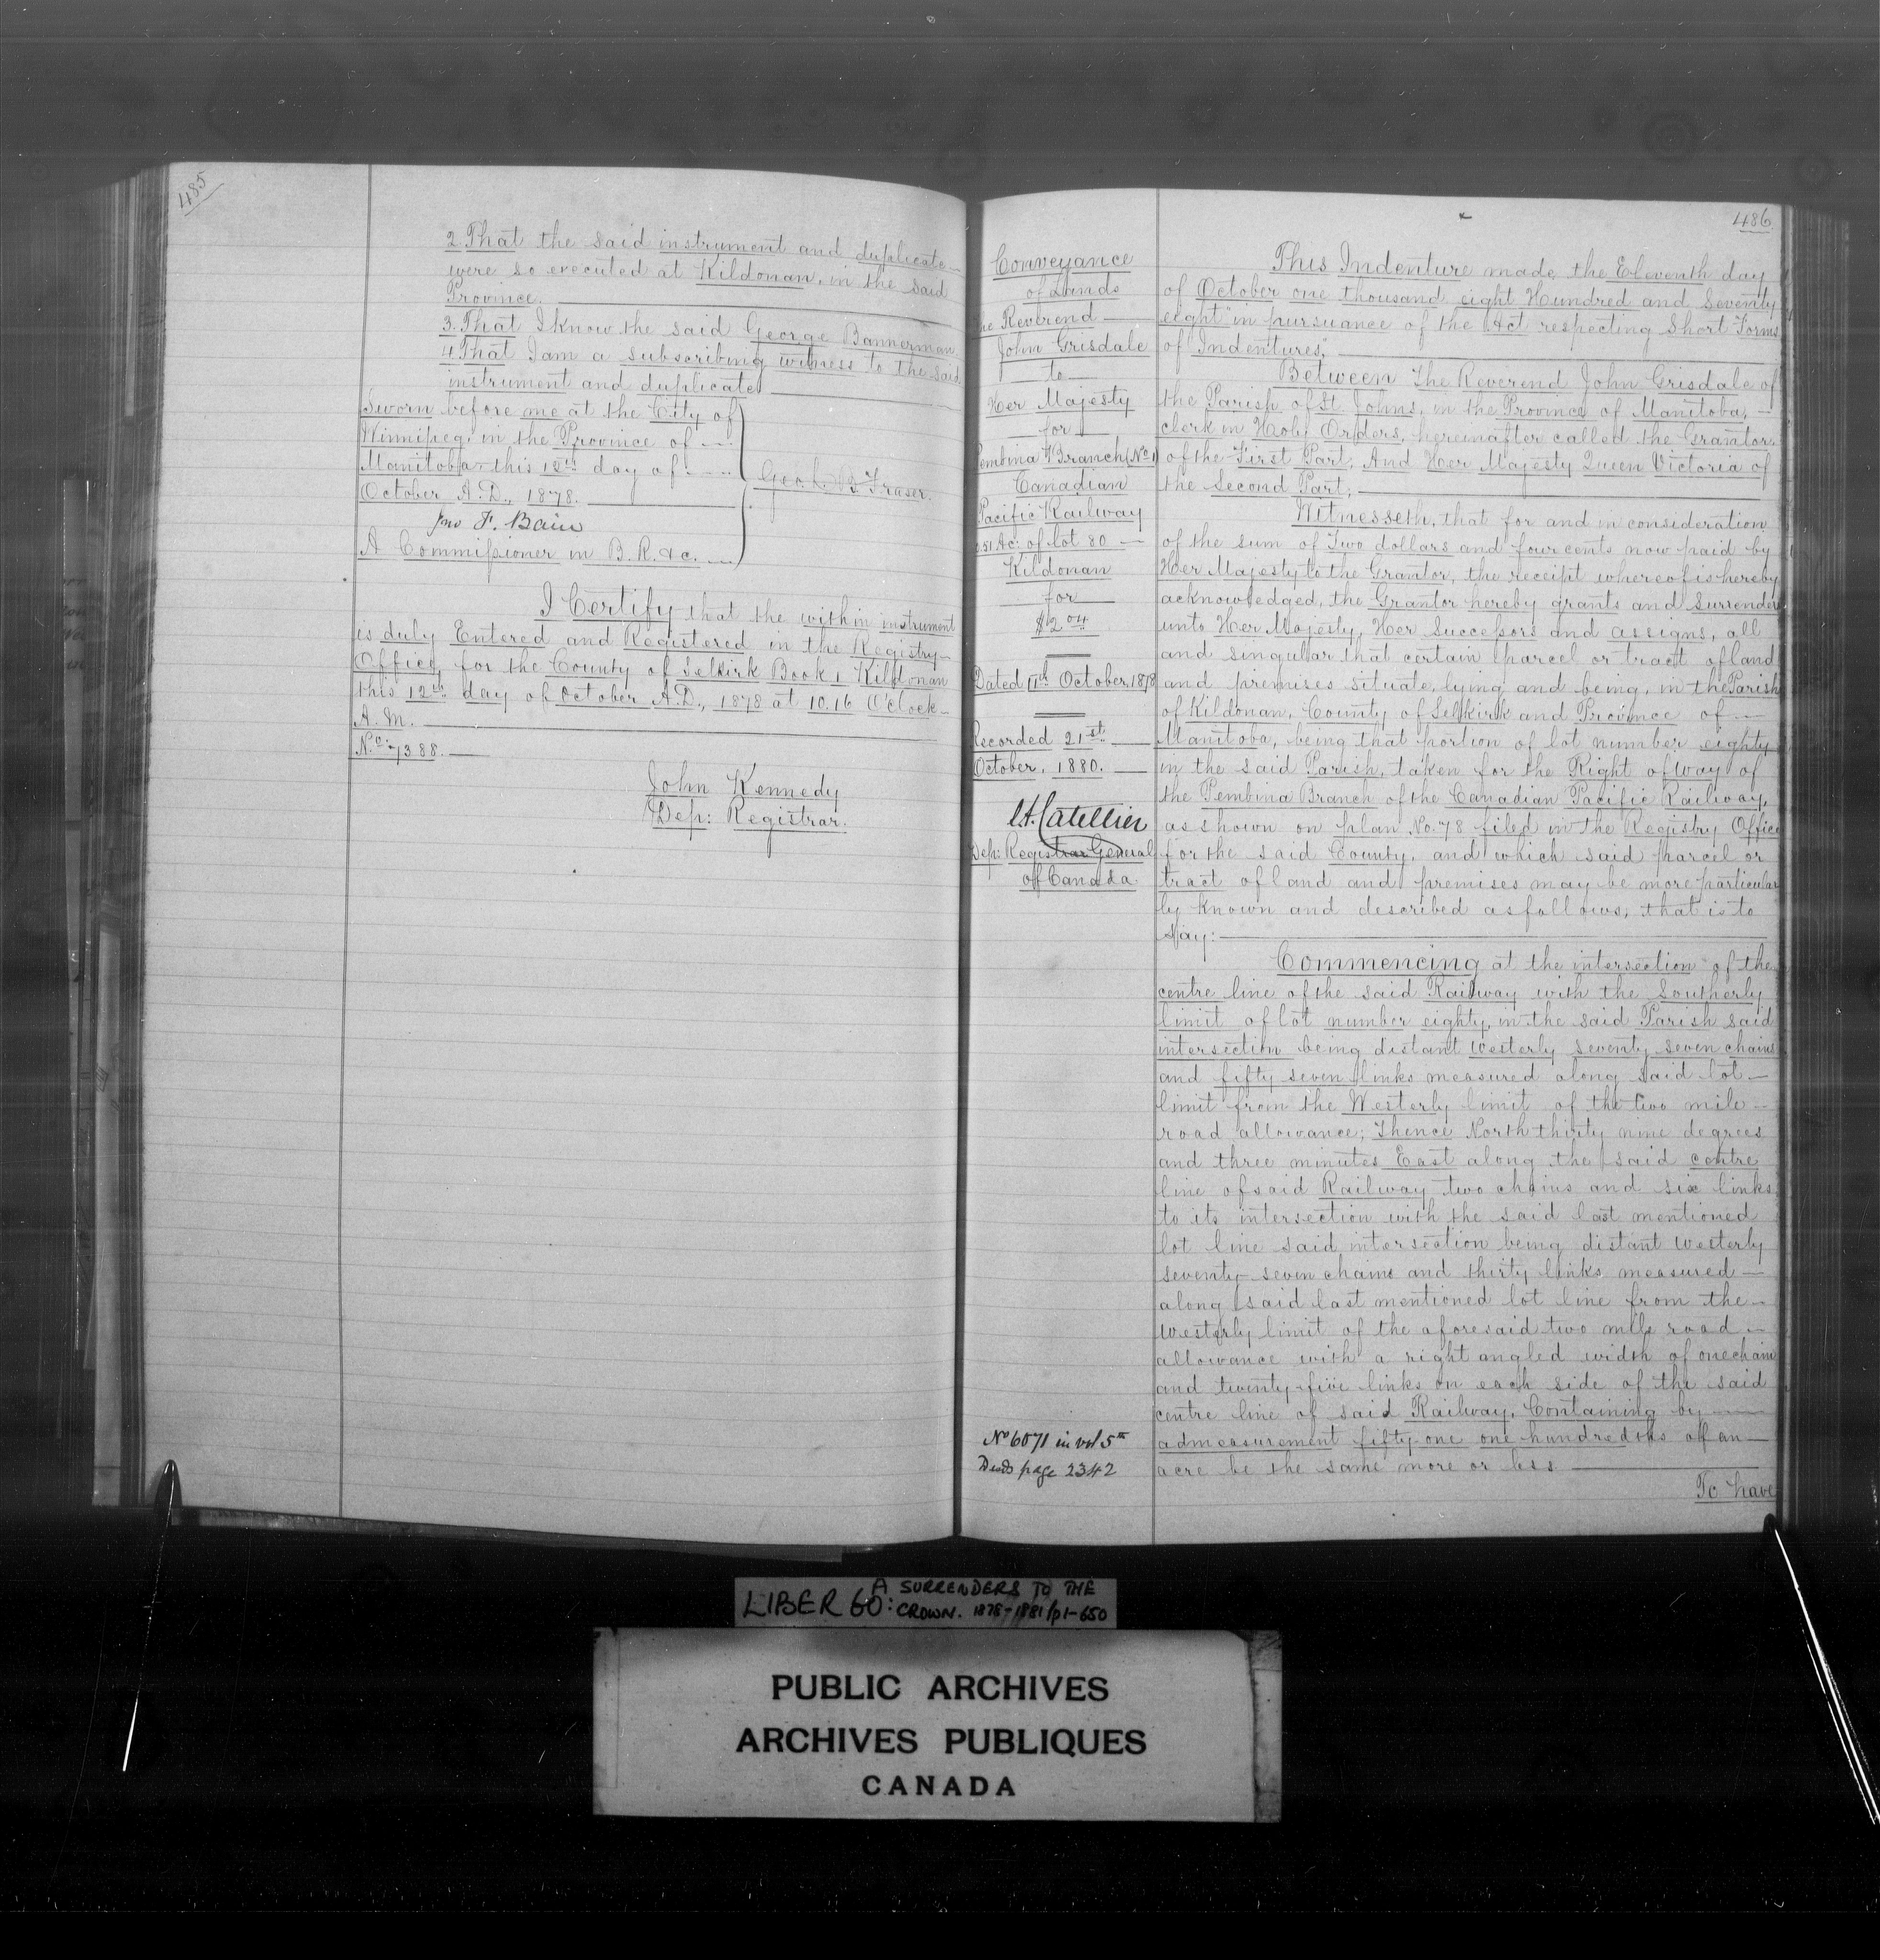 485
2. That the said instrument and duplicate
were so executed at Kildonan, in the said
Province.
3. That I know the said George Bannerman
4. That I am a subscribing witness to the said
instrument and duplicate
Sworn before me at the City of
Winnipeg, in the Province of
Manitoba this 12th day of
October A.D., 1878.
Jno F. Bain
A Commissioner in B.R. &c.
Geo. B Fraser.
I Certify that the within instrument
is duly Entered and Registered in the Registry
Office, for the County of Selkirk Book 1 Kildonan
this 12th day of October A.D., 1878 at 10.16 O'Clock
A.M.
No. 1388.
John Kennedy
Dep: Registrar.
486
Conveyance
of Lands
he Reverend
John Grisdale
to
Her Majesty
for
Pembina Branch (No 1
Canadian
Pacific Railway
.51 Ac: of lot 80
Kildonan
for
$2 04
Dated 11th October, 1878
Recorded 21st
October, 1880.
Catellier
Dep: Registrar General
of Canada
No 6071 in vol 5
Deeds page 2342
This Indenture made the Eleventh day
of October one thousand eight Hundred and Seventy
eight "in pursuance of the Act respecting Short Forms
of Indentures,"
Between The Reverend John Grisdale of
the Parish of St. Johns, in the Province of Manitoba,
clerk in Holy Orders, hereinafter called the Grantor
of the First Part, And Her Majesty Queen Victoria of
the Second Part,
Witnesseth, that for and in consideration
of the sum of Two dollars and four cents now paid by
Her Majesty to the Grantor, the receipt whereof is hereby
acknowledged, the Grantor hereby grants and Surrenders
unto Her Majesty, Her Successors and assigns, all
and singular that certain parcel or tract of land
and premises situate, lying and being, in the Parish
of Kildonan, County of Selkirk and Province of
Manitoba, being that portion of lot number eighty
in the said Parish, taken for the Right of Way of
the Pembina Branch of the Canadian Pacific Railway,
as shown on plan No. 78 filed in the Registry Office
for the said County, and which said parcel or
tract of land and premises may be more particular
ly known and described as follows, that is to
say:
Commencing at the intersection of the
centre line of the said Railway with the Southerly
limit of lot number eighty, in the said Parish said
intersection being distant Westerly seventy seven chains
and fifty seven links measured along said lot
limit from the Westerly limit of the two mile
road allowance; Thence North thirty nine degrees
and three minutes East along the said centre
line of said Railway two chains and six links
to its intersection with the said last mentioned
lot line said intersection being distant Westerly
seventy seven chains and thirty links measured
along said last mentioned lot line from the
Westerly limit of the aforesaid two mile road
allowance with a right angled width of one chain
and twenty-five links on each side of the said
centre line of said Railway, Containing by
admeasurement fifty-one one hundredths of an
acre be the same more or less
To have
LIBER 60: A SURRENDERS TO THE
CROWN. 1878-1881/p1-650
PUBLIC ARCHIVES
ARCHIVES PUBLIQUES
CANADA